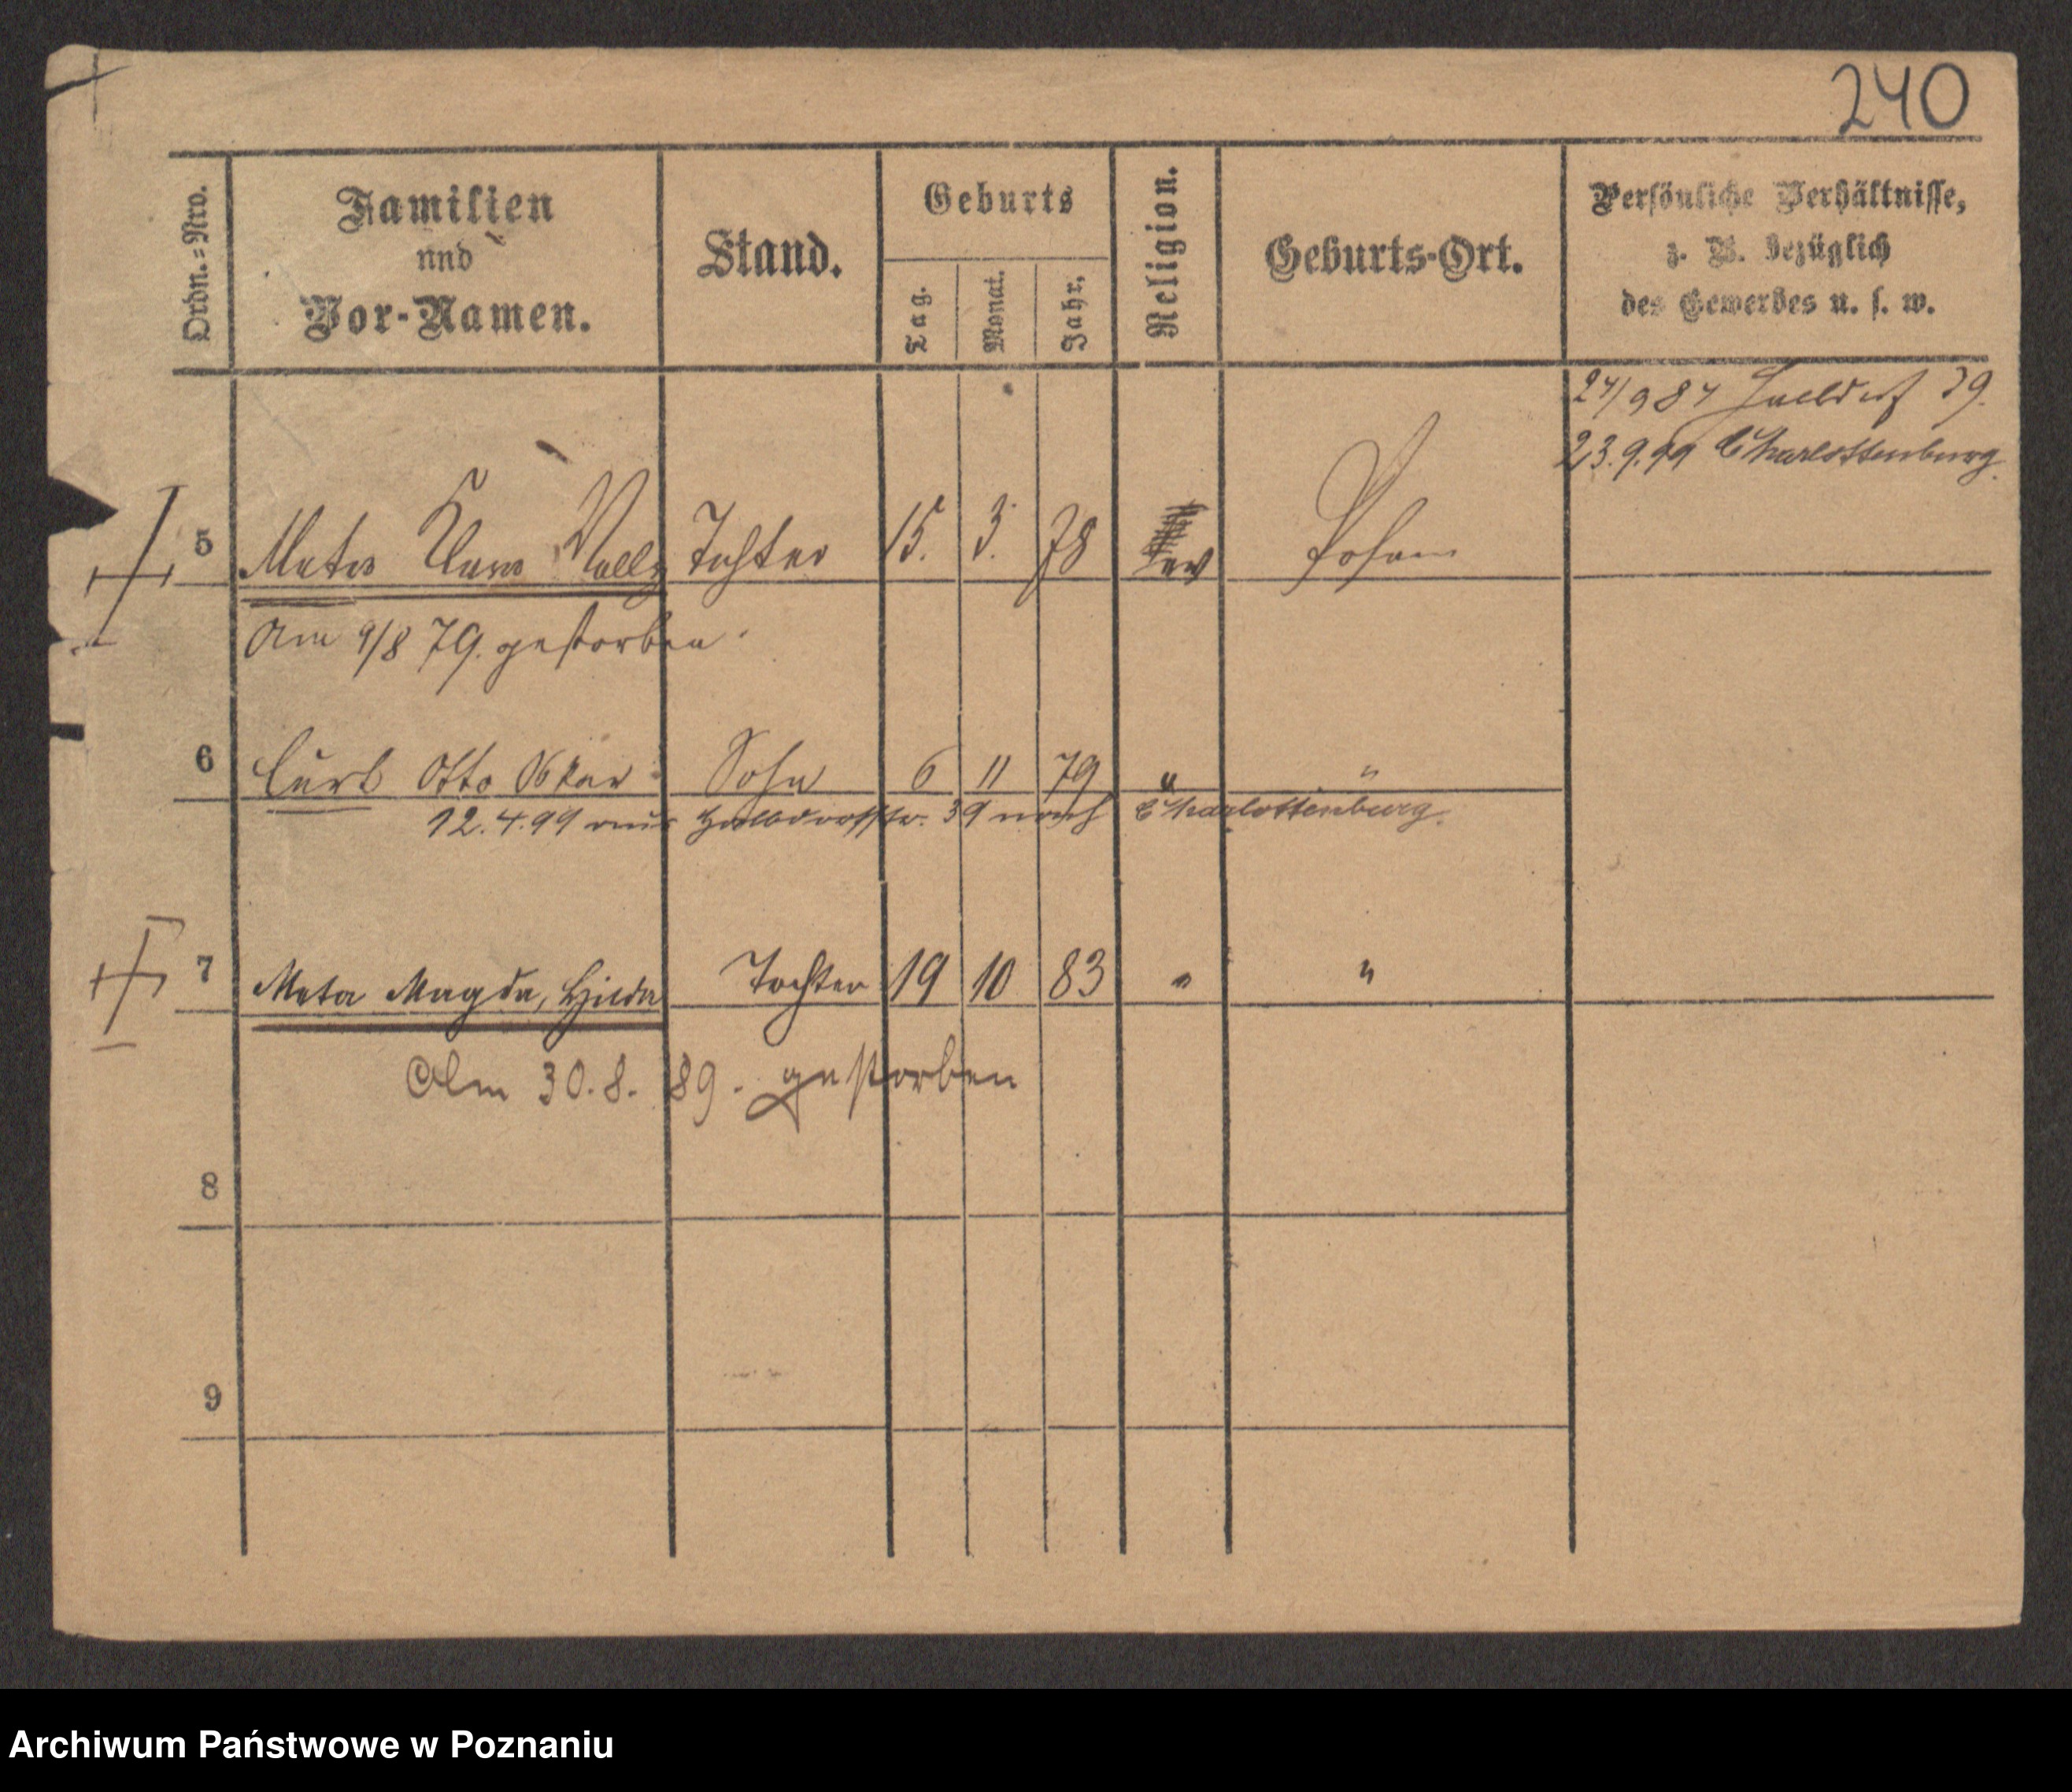 240
Ordn.=Nro.
Familien
und
Vor-Namen.
Stand.
Geburts
Tag.
Monat.
Jahr.
Religion.
Geburts-Ort.
Persönliche Verhältnisse,
z. B. bezüglich
des Gewerbes u. s. w.
24/9 84 39.
23.9.99 Charlottenburg.
5 Meta Clara Tochter 15. 3. 78 Posen
Am 9/8 79. gestorben.
6 Curt Otto Oskar Sohn 6 11 79 " "
12.4.99 aus Halbdorfstr. 39 nach Charlottenburg.
7 Meta Magda, Hilda Tochter 19 10 83 " "
Am 30.8.89. gestorben
8
9
Archiwum Państwowe w Poznaniu